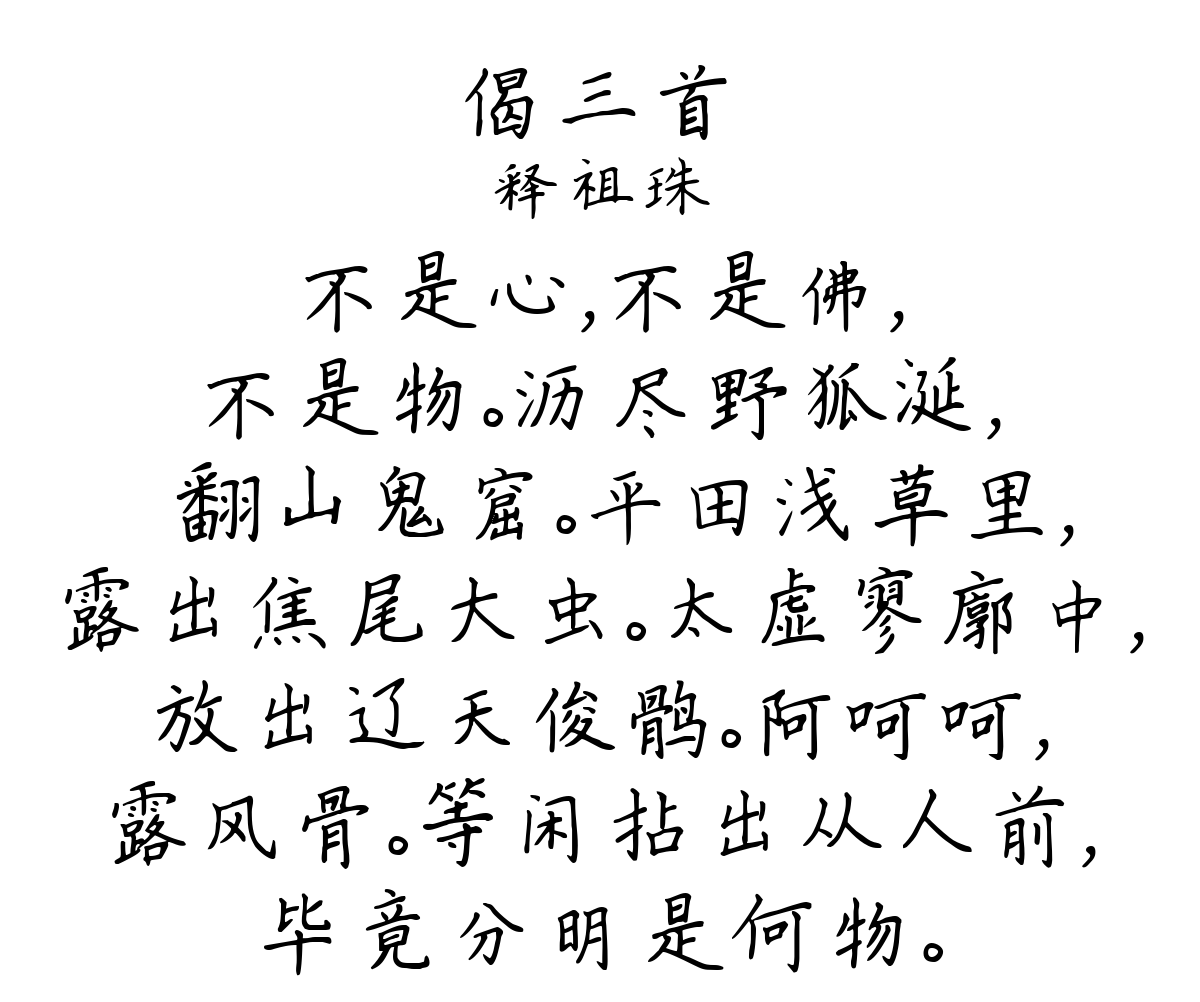 偈三首
释祖珠
不是心,不是佛,
不是物。沥尽野狐涎,
翻山鬼窟。平田浅草里,
露出焦尾大虫。太虚寥廓中,
放出辽天俊鹘。阿呵呵,
露风骨。等闲拈出从人前,
毕竟分明是何物。